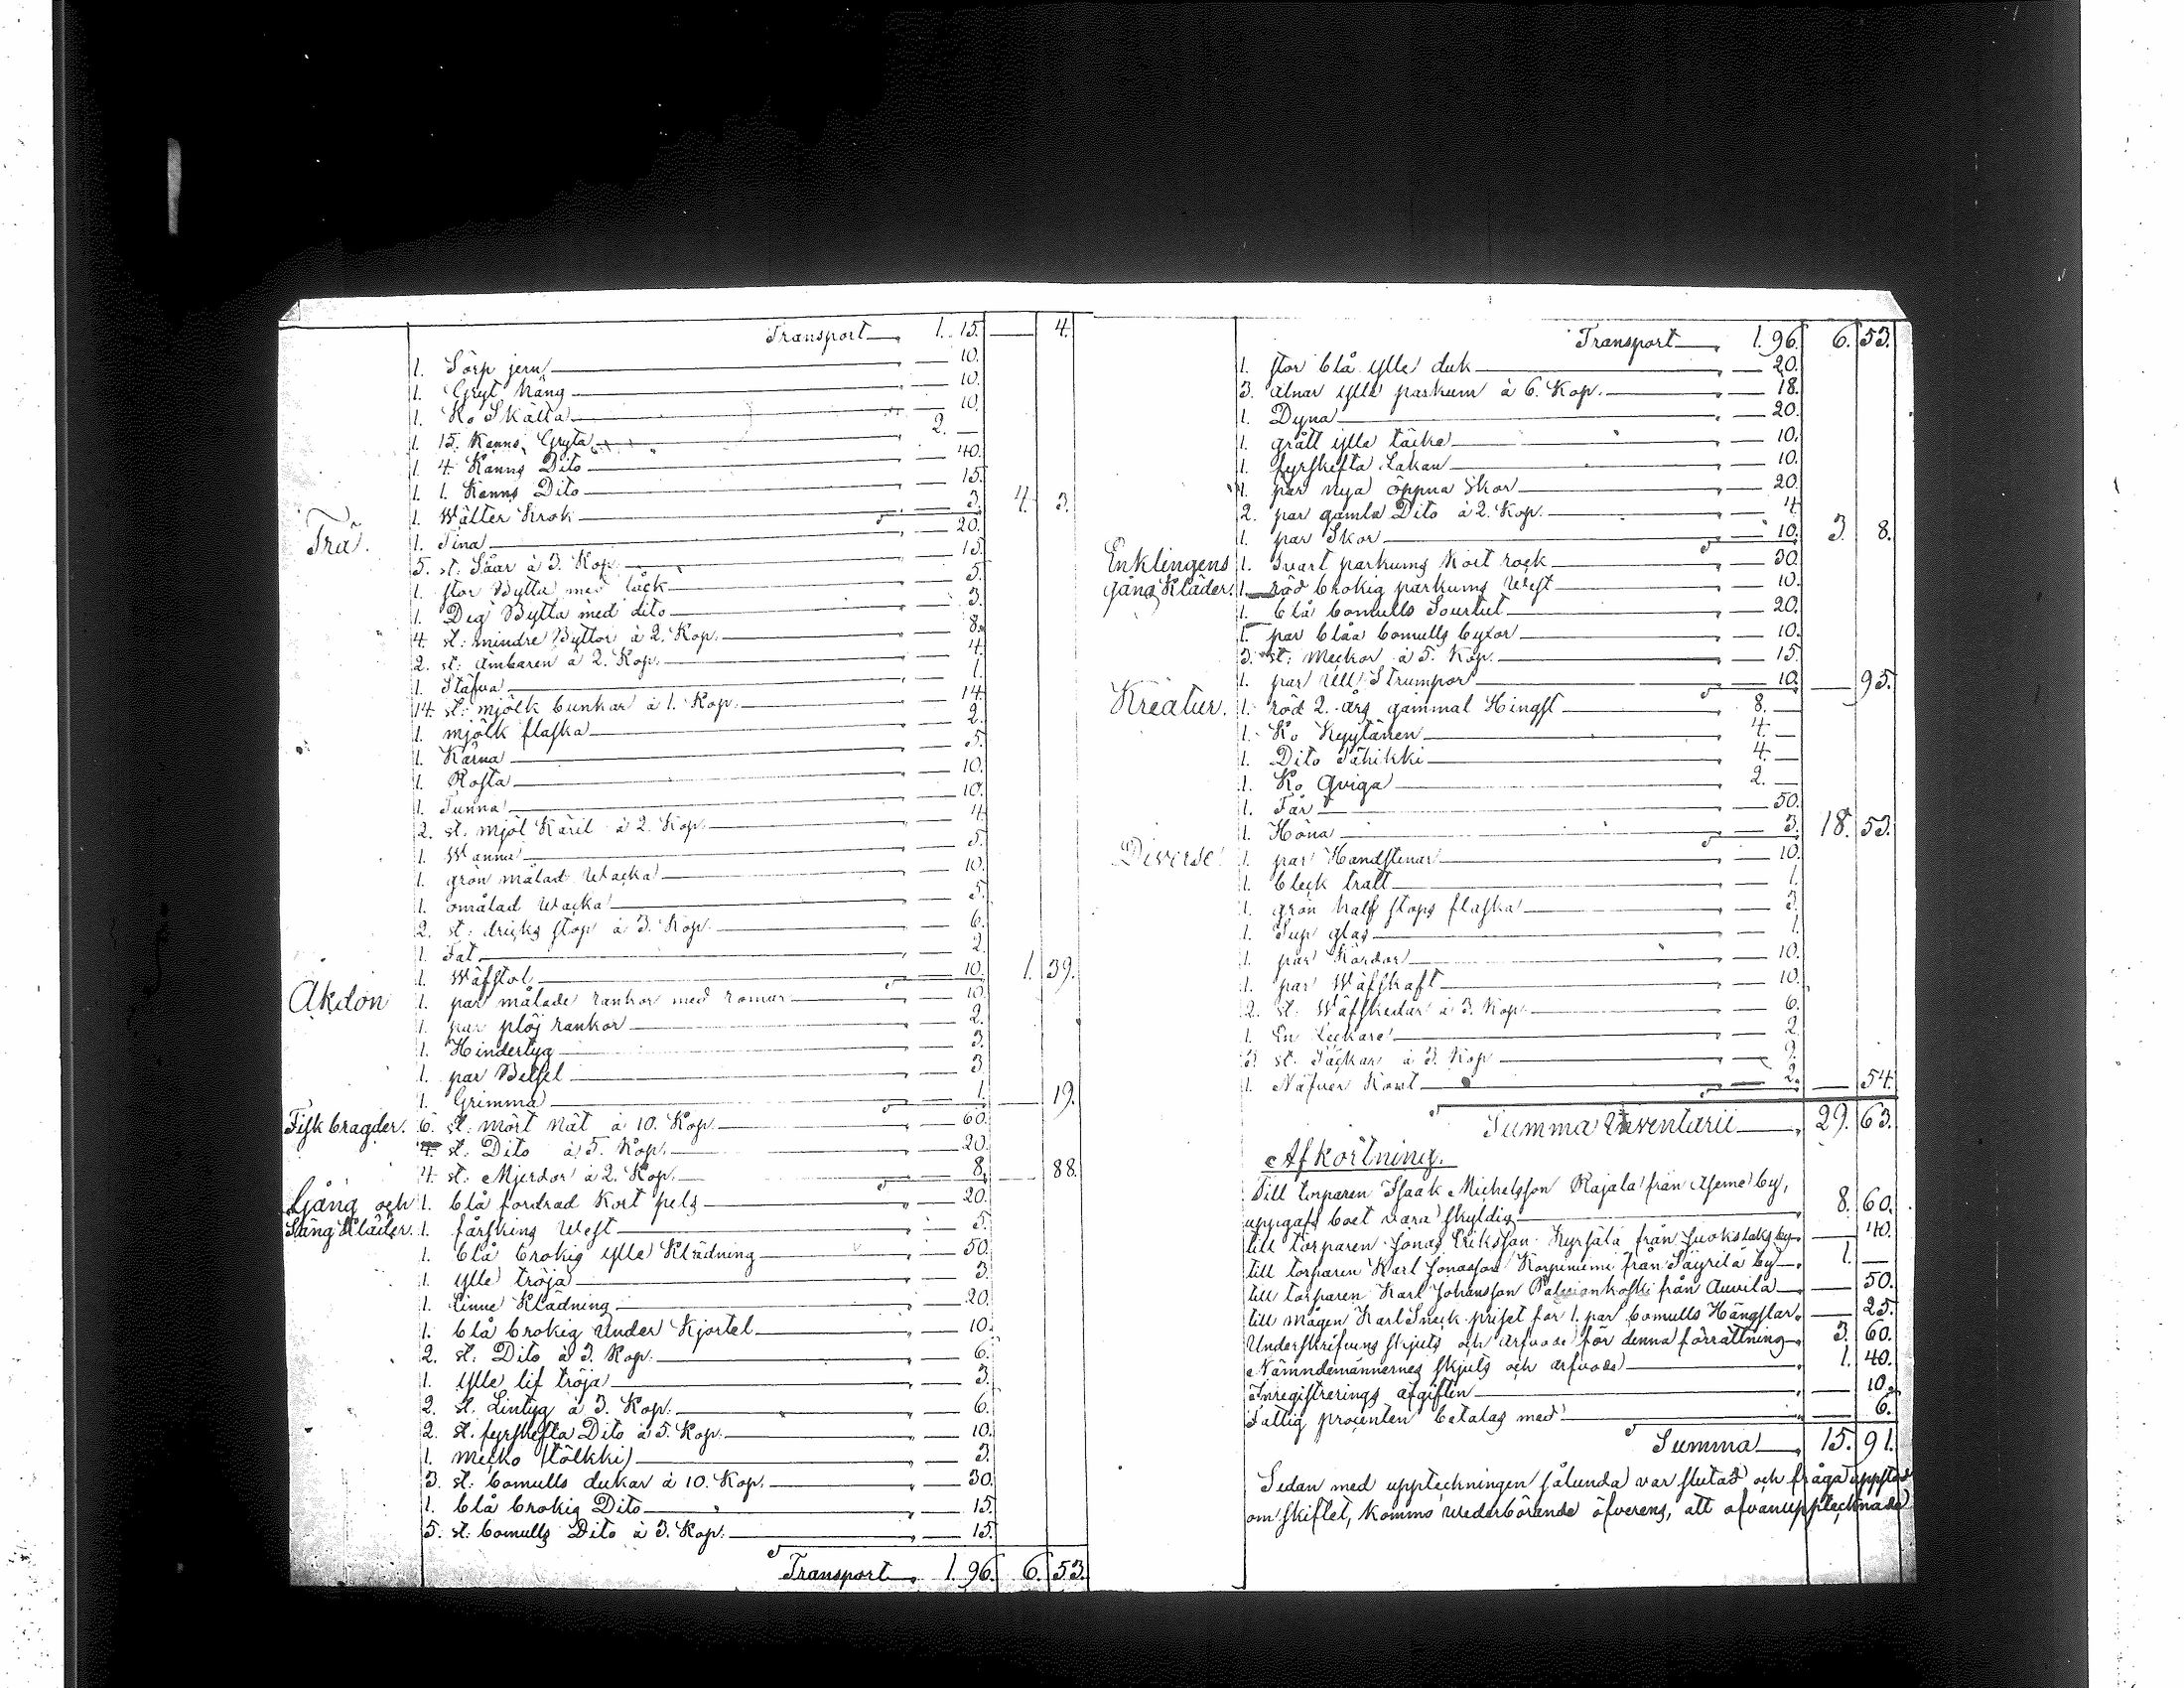 Transport 1. 15. — 4.
1. Sörp jern — 10.
1. Gryt häng — 10.
1. Ko Skälla — 10.
1. 15. Kanns Gryta 2. —
1. 4. Kanns Dito — 40.
1. 1. Kanns Dito — 15.
1. Wälter Krok — 3. 4. 3.
Trä. 1. Tina — 20.
5. st: Såar à 3. Kop. — 15.
1. stor Bytta med låck — 5.
1. Deg Bytta med dito — 3.
4. st: mindre Byttor à 2. Kop. — 8.
2. st: ämbaren à 2. Kop. — 4.
1. Stäfva — 1.
14. st: mjölk bunkar à 1. Kop. — 14.
1. mjölk flaska — 2.
1. Kärna — 5.
1. Rosta — 10.
1. Tunna — 10.
2. st. mjöl Käril à 2. Kop. — 4.
1. Wanna — 5.
1. grön målad Wacka — 10.
1. omålad Wacka — 5.
2. st: dricks stop à 3. Kop. — 6.
1. Fat — 2.
1. Wäfstol — 10. 1. 39.
Åkdon 1. par målade rankor med romar — 10.
1. par plöj rankor — 2.
1. Hindertyg — 3.
1. par Betsel — 3.
1. Grimma — 1. — 19.
Fisk bragder. 6. st: mört Nät à 10. Kop. — 60.
4. st: Dito à 5. Kop. — 20.
4. st: Mjerdor à 2. Kop. — 8. — 88.
Gång och 1. blå fordrad Kort pels — 20.
Säng Kläder. 1. fårskins West — 5.
1. blå brokig ylle Klädning — 50.
1. ylle tröja — 3.
1. Linne Klädning — 20.
1. blå brokig Under Kjortel — 10.
2. st: Dito à 3. Kop. — 6.
1. ylle lif tröja — 3.
2. st. Lintyg à 3. Kop. — 6.
2. st. fyrskefta Dito à 5. Kop. — 10.
1. mecko (tölkki) — 3.
3. st: bomulls dukar à 10. Kop. — 30.
1. blå brokig Dito — 15.
5. st: bomulls Dito à 3. Kop. — 15.
Transport 1. 96. 6. 53.
Transport 1. 96. 6. 53.
1. stor blå ylle duk — 20.
3. alnar ylle parkum à 6. Kop. — 18.
1. Dyna — 20.
1. grått ylle täcke — 10.
1. fyrskefta Lakan — 10.
1. par nya öppna skor — 20.
2. par gamla Dito à 2. Kop. — 4.
1. par Skor — 10. 3. 8.
Enklingens 1. svart parkums Kort rock — 30.
gång Kläder. 1. röd brokig parkums West — 10.
1. blå bomulls Sourtut — 20.
1. par blåa bomulls byxor — 10.
3. st: meckor à 5. Kop. — 15.
1. par Ull Strumpor — 10. — 95.
Kreatur. 1. röd 2. års gammal Hingst 8. —
1. Ko Kyytänen 4. —
1. Dito Tähikki 4. —
1. Ko Qviga 2. —
1. Får — 50.
1. Höna — 3. 18. 53.
Diverse 1. par Handstenar — 10.
1. bleck tratt — 1.
1. grön half stops flaska — 3.
1. Sup glas — 1.
1. par Kardor — 10.
1. par Wäfskaft — 10.
2. st: Wäfskedar à 3. Kop. — 6.
1. En Leckare — 2.
3. st. Säckar à 3. Kop — 9.
1. Näfver Kont — 2. — 54.
Summa Inventarii 29. 63.
Afkortning.
Till torparen Isaak Michelsson Rajala från Aseme by,
uppgafs boet vara skyldig 8. 60.
till torparen Jonas Eriksson Kyrsälä från Juokslaks by — 40.
till torparen Karl Jonasson Korpiniemi från Säyrilä by 1. —
till torparen Karl Johansson från Auvila — 50.
till mågen Karl Sneck priset för 1. par bomulls Hängslar — 25.
Underskrifvens skjuts och arfvode för denna förrättning 3. 60.
Nämndemännernes skjuts och arfvode 1. 40.
Inregistrerings afgiften — 10.
Fattig procenten betalas med — 6.
Summa 15. 91.
Sedan med uppteckningen sålunda var slutad och fråga uppstod
om skiftet, kommo wederbörande öfverens, att ofvanupptecknade